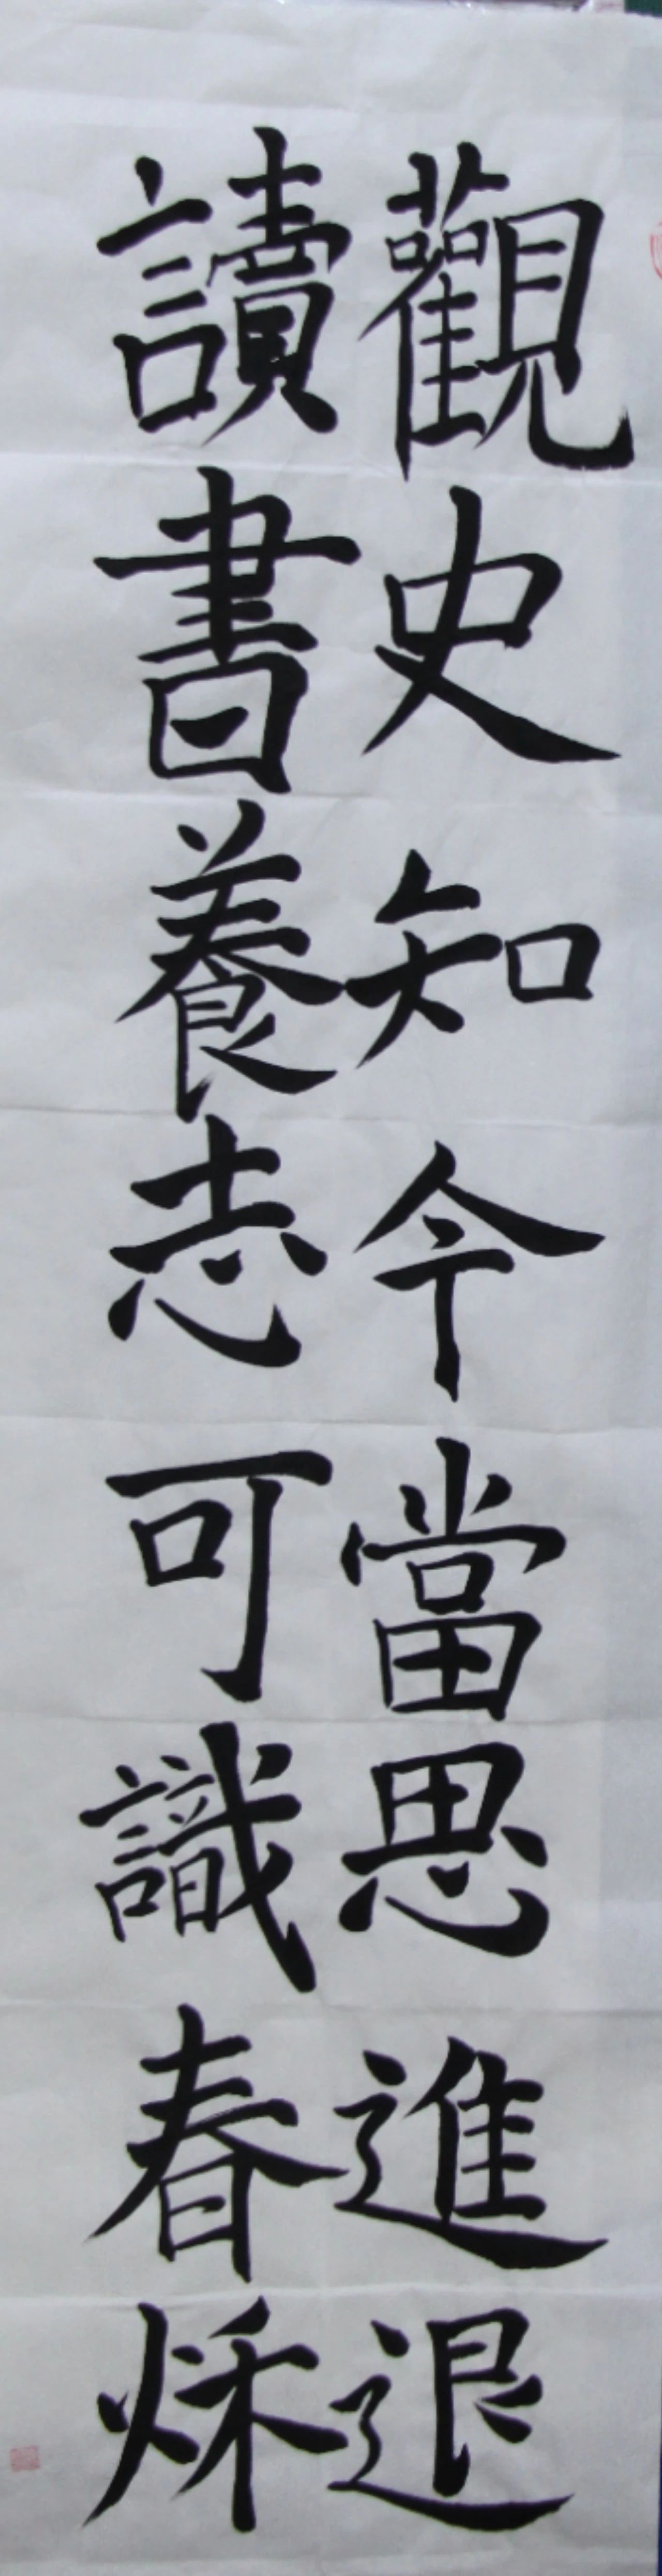 觀史知今當思進退
讀書養志可識春秌